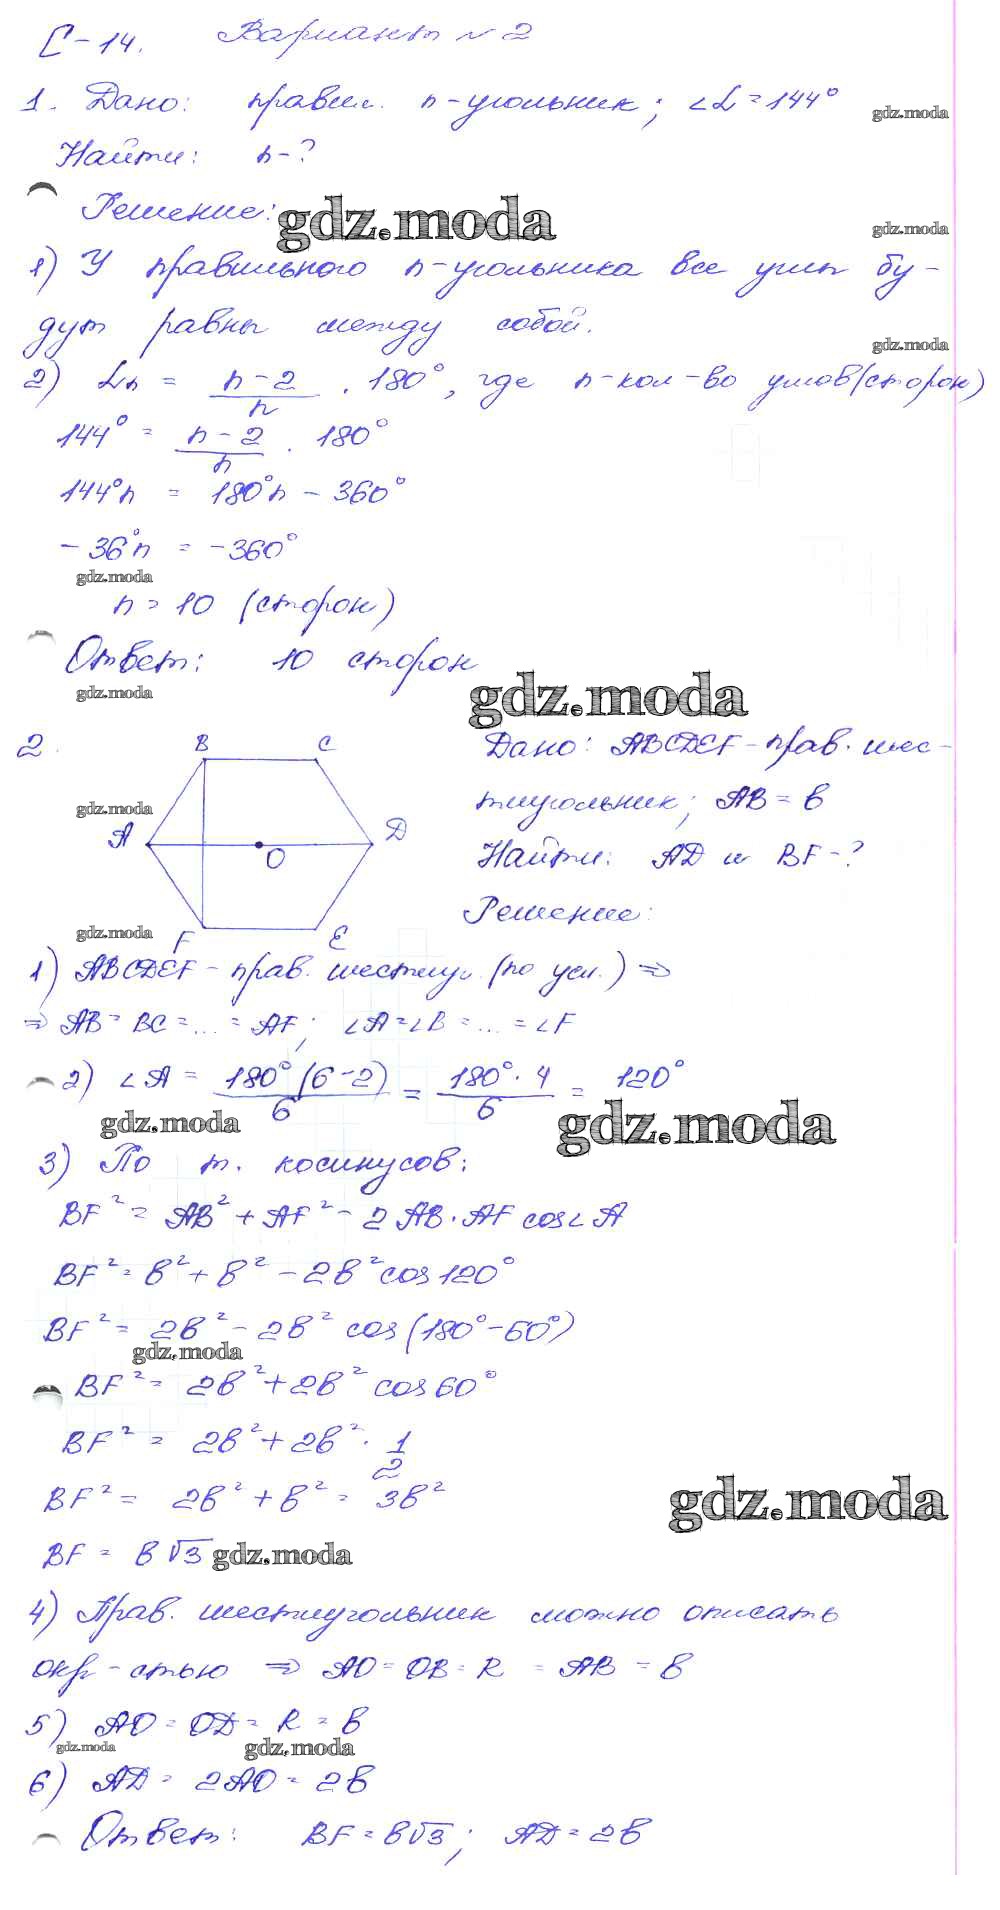 С-14. Вариант №2
1. Дано: правил. n-угольник; ∠α=144° gdz.moda
Найти: n-?
Решение: gdz.moda
gdz.moda
1) У правильного n-угольника все углы бу-
дут равны между собой.
gdz.moda
2) αn = (n-2)/n · 180°, где n-кол-во углов(сторон)
144° = (n-2)/n · 180°
144°n = 180°n - 360°
-36°n = -360°
gdz.moda
n = 10 (сторон)
Ответ: 10 сторон
gdz.moda gdz.moda
2.
B C
A D
O
F E
gdz.moda
gdz.moda
Дано: ABCDEF - прав. шес-
тиугольник; AB = в
Найти: AD и BF-?
Решение:
1) ABCDEF - прав. шестиуг. (по усл.) ⇒
⇒ AB = BC = ... = AF; ∠A = ∠B = ... = ∠F
2) ∠A = 180°(6-2)/6 = 180°·4/6 = 120°
gdz.moda gdz.moda
3) По т. косинусов:
BF² = AB² + AF² - 2AB·AF cos∠A
BF² = в² + в² - 2в² cos120°
BF² = 2в² - 2в² cos(180°-60°)
gdz.moda
BF² = 2в² + 2в² cos60°
BF² = 2в² + 2в² · 1/2
BF² = 2в² + в² = 3в²
gdz.moda
BF = в√3 gdz.moda
4) Прав. шестиугольник можно описать
окр-стью ⇒ AO = OB = R = AB = в
5) AO = OD = R = в
gdz.moda gdz.moda
6) AD = 2AO = 2в
Ответ: BF = в√3; AD = 2в